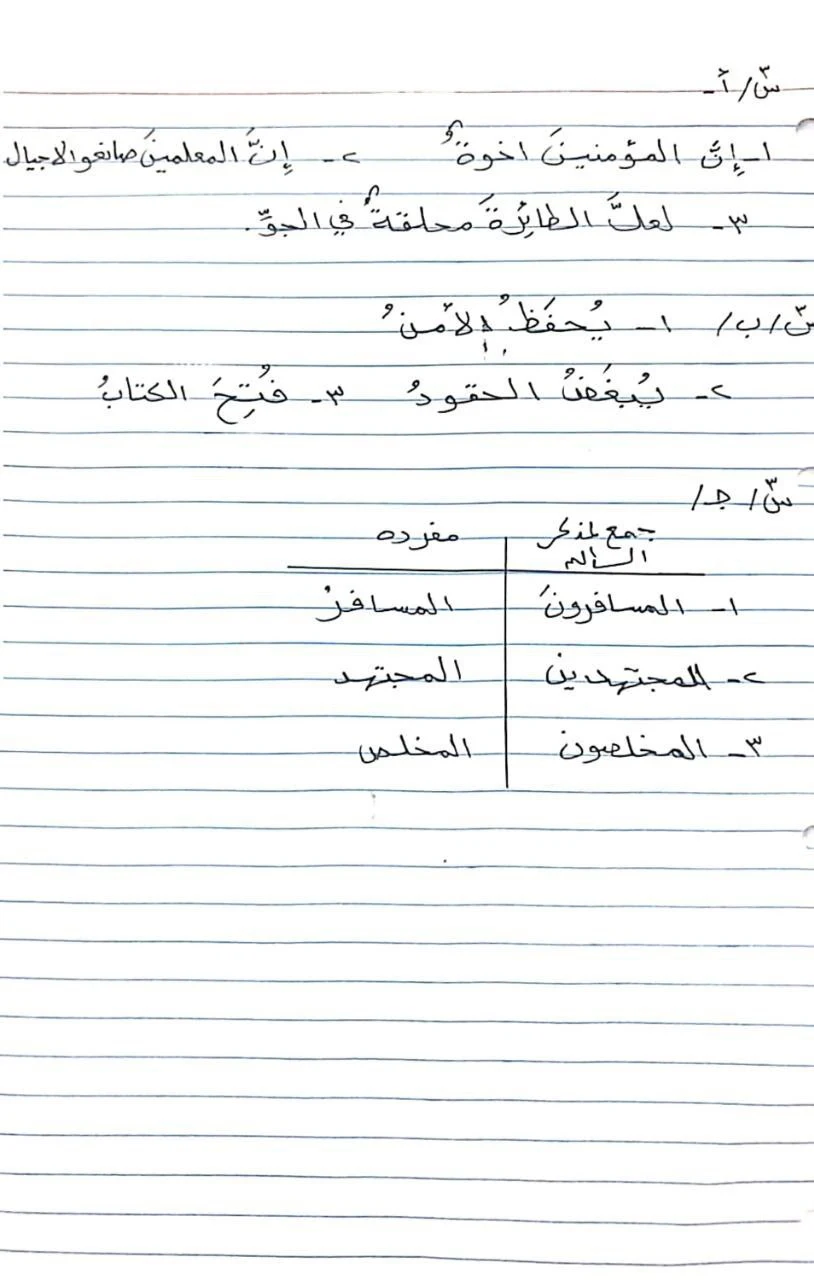 س٣/أ-
١- إنَّ المؤمنينَ اخوةٌ ٢- إنَّ المعلمينَ صانعو الاجيال
٣- لعلَّ الطائِرةَ محلقةٌ في الجوِّ.
س٣/ب/ ١- يُحفَظُ الأمنُ
٢- يُبغَضُ الحقودُ ٣- فُتِحَ الكتابُ
س٣/ جـ/
جمع المذكر مفرده
السالم
١- المسافرونَ المسافرُ
٢- المجتهدين المجتهد
٣- المخلصون المخلص